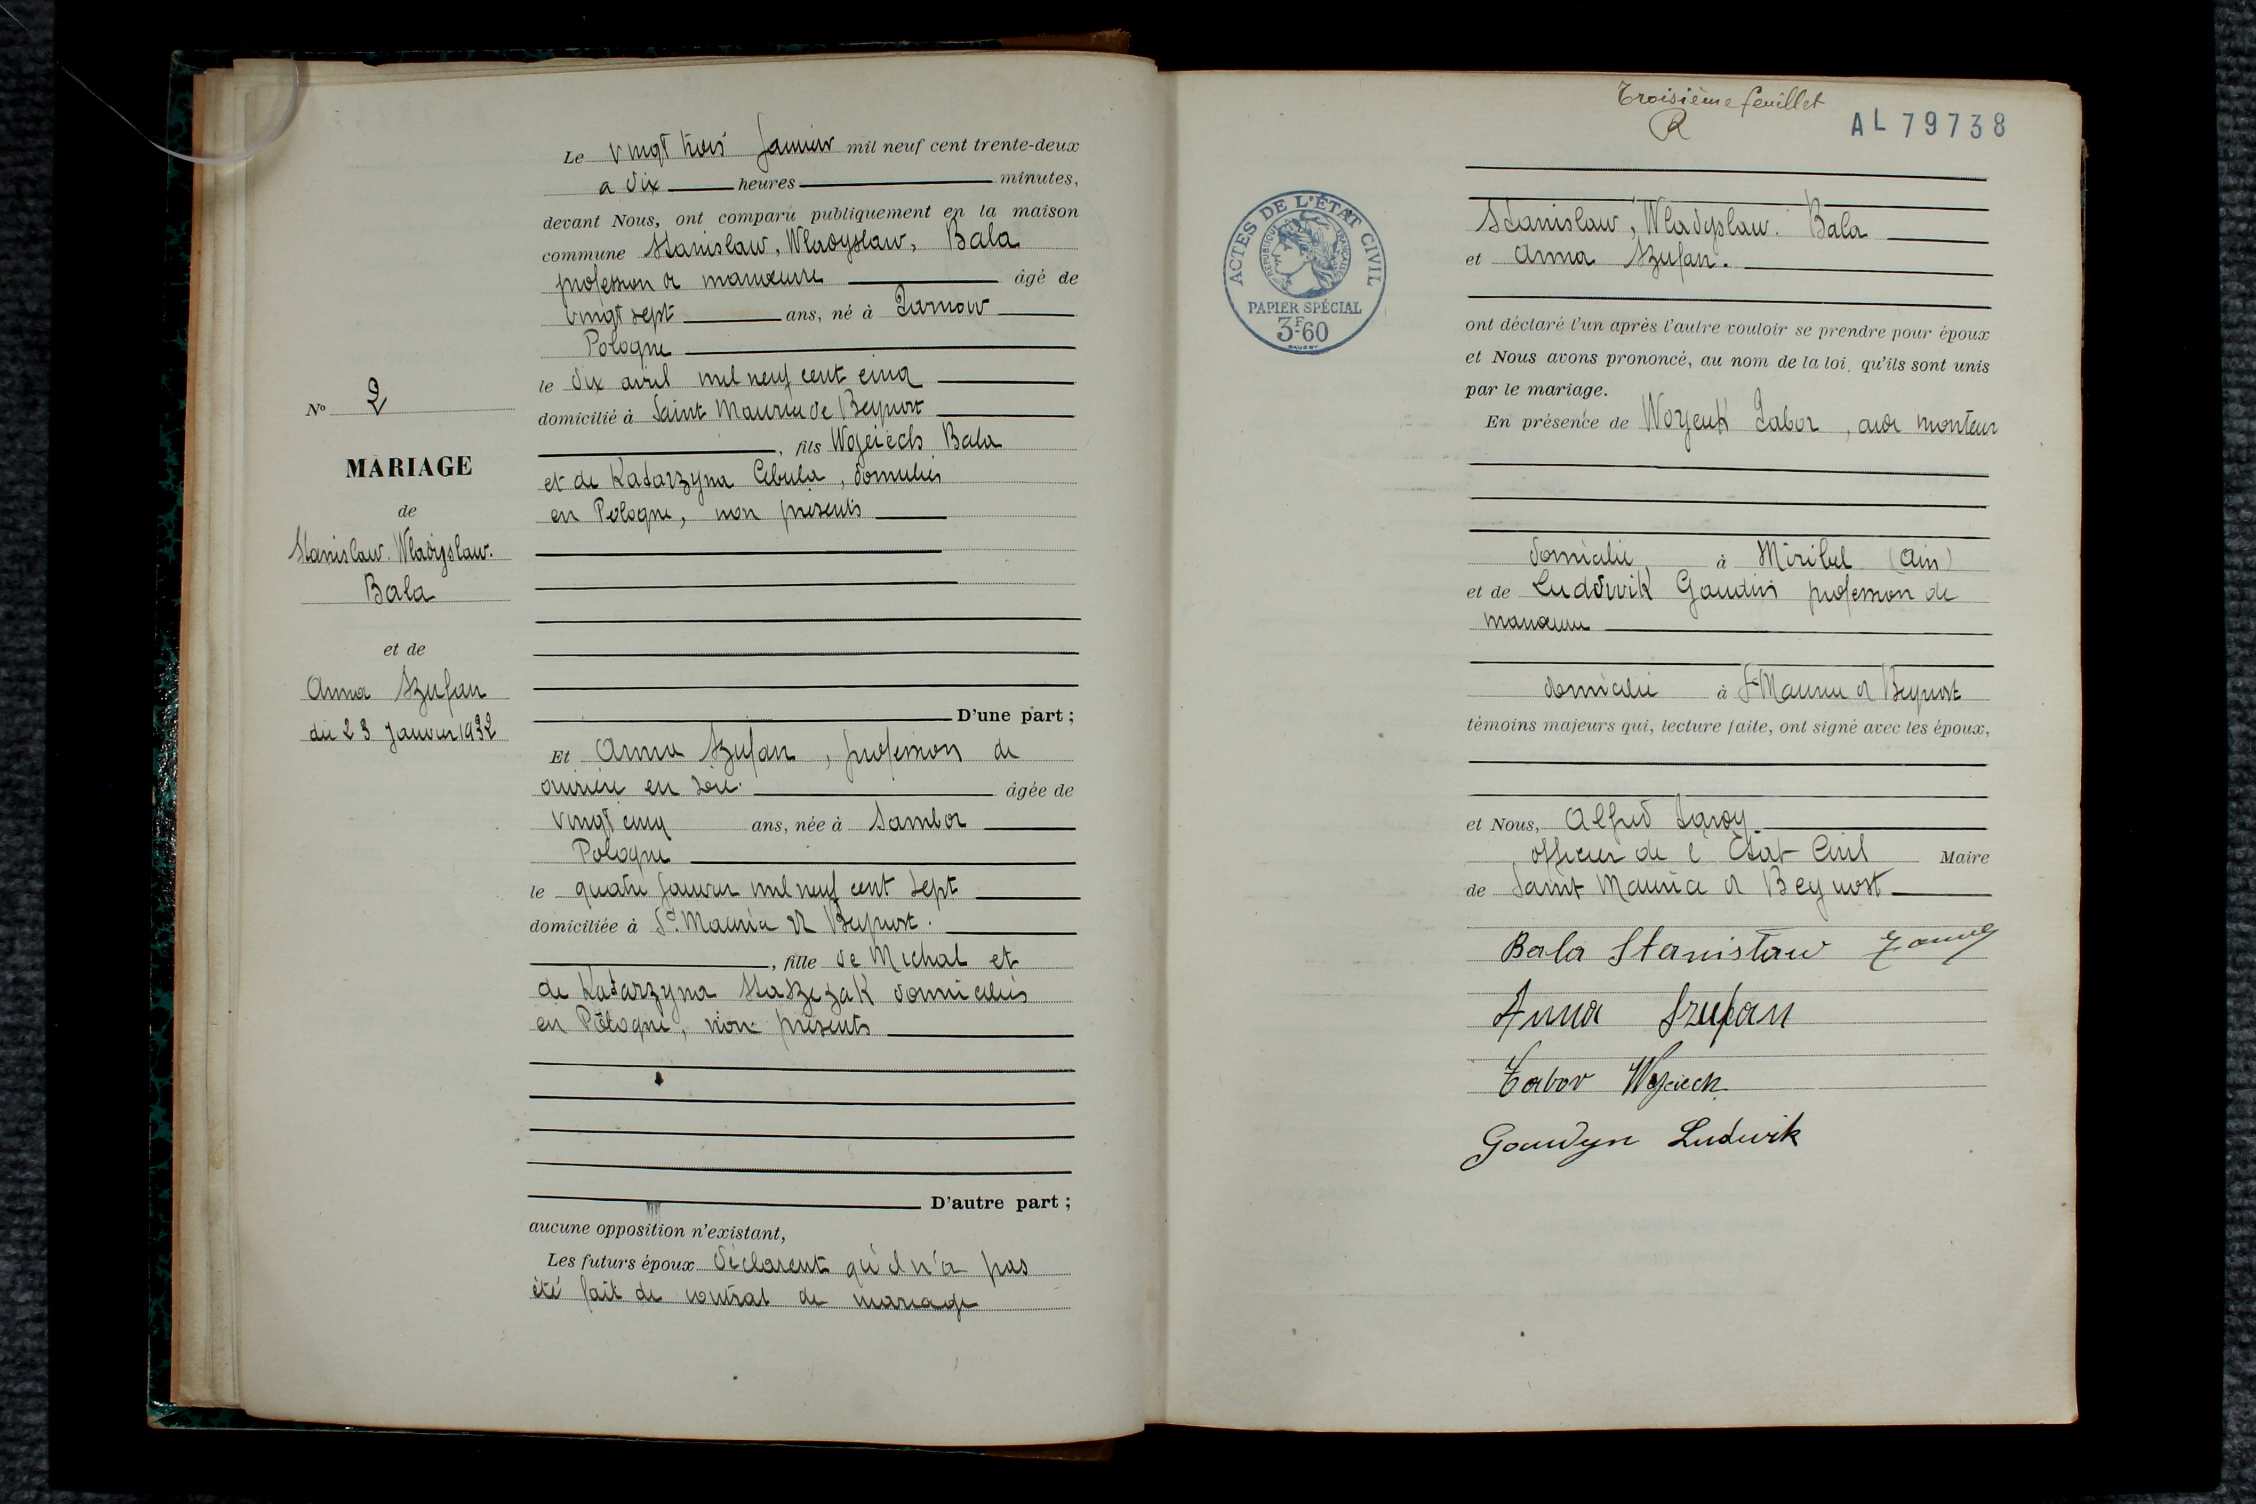 Le vingt trois Janvier mil neuf cent trente-deux
a dix heures minutes,
devant Nous, ont comparu publiquement en la maison
commune Stanislaw, Wladyslaw, Bala
profession de manœuvre âgé de
vingt sept ans, né à Tarnow
Pologne
le dix avril mil neuf cent cinq
domicilié à Saint Maurice de Beynost
, fils Wojeiech Bala
et de Katarzyna Cebula, domiciliés
en Pologne, non présents
D'une part ;
Et Anna Szufan, profession de
ouvrière en soie. âgée de
vingt cinq ans, née à Sambor
Pologne
le quatre Janvier mil neuf cent sept
domiciliée à St Maurice de Beynost.
, fille de Michal et
de Katarzyna Staszezak domiciliés
en Pologne, non présents
D'autre part ;
aucune opposition n'existant,
Les futurs époux déclarent qu'il n'a pas
été fait de contrat de mariage
No 2
MARIAGE
de
Stanislaw. Wladyslaw.
Bala
et de
Anna Szufan
du 23 Janvier 1932
Troisième feuillet
R
AL 79738
ACTES DE L'ÉTAT CIVIL
RÉPUBLIQUE FRANÇAISE
PAPIER SPÉCIAL
3F.60
Stanislaw, Wladyslaw. Bala
et Anna Szufan.
ont déclaré l'un après l'autre vouloir se prendre pour époux
et Nous avons prononcé, au nom de la loi, qu'ils sont unis
par le mariage.
En présence de Woyeuk Tabor, aide monteur
domicilié à Miribel (Ain)
et de Ludowik Gaudin profession de
manœuvre
domicilié à St Maurice de Beynost
témoins majeurs qui, lecture faite, ont signé avec les époux,
et Nous, Alfred
officier de l'Etat Civil Maire
de Saint Maurice de Beynost
Bala Stanisław
Anna Szufan
Tabor Wojciech
Gaudyn Ludwik